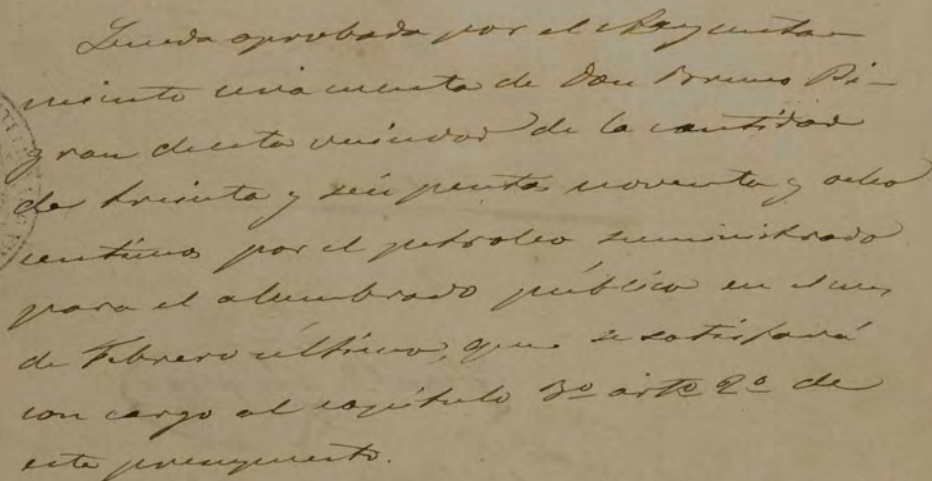 Queda aprobada por el Ayunta
miento una cuenta de Don Bruno Pi-
gran de esta vecindad de la cantidad
de treinta y seis pesetas noventa y ocho
centimos por el petroleo suministrado
para el alumbrado público en el mes
de Febrero último, que se satisfará
con cargo al capitulo 3º artº 2º de
este presupuesto.